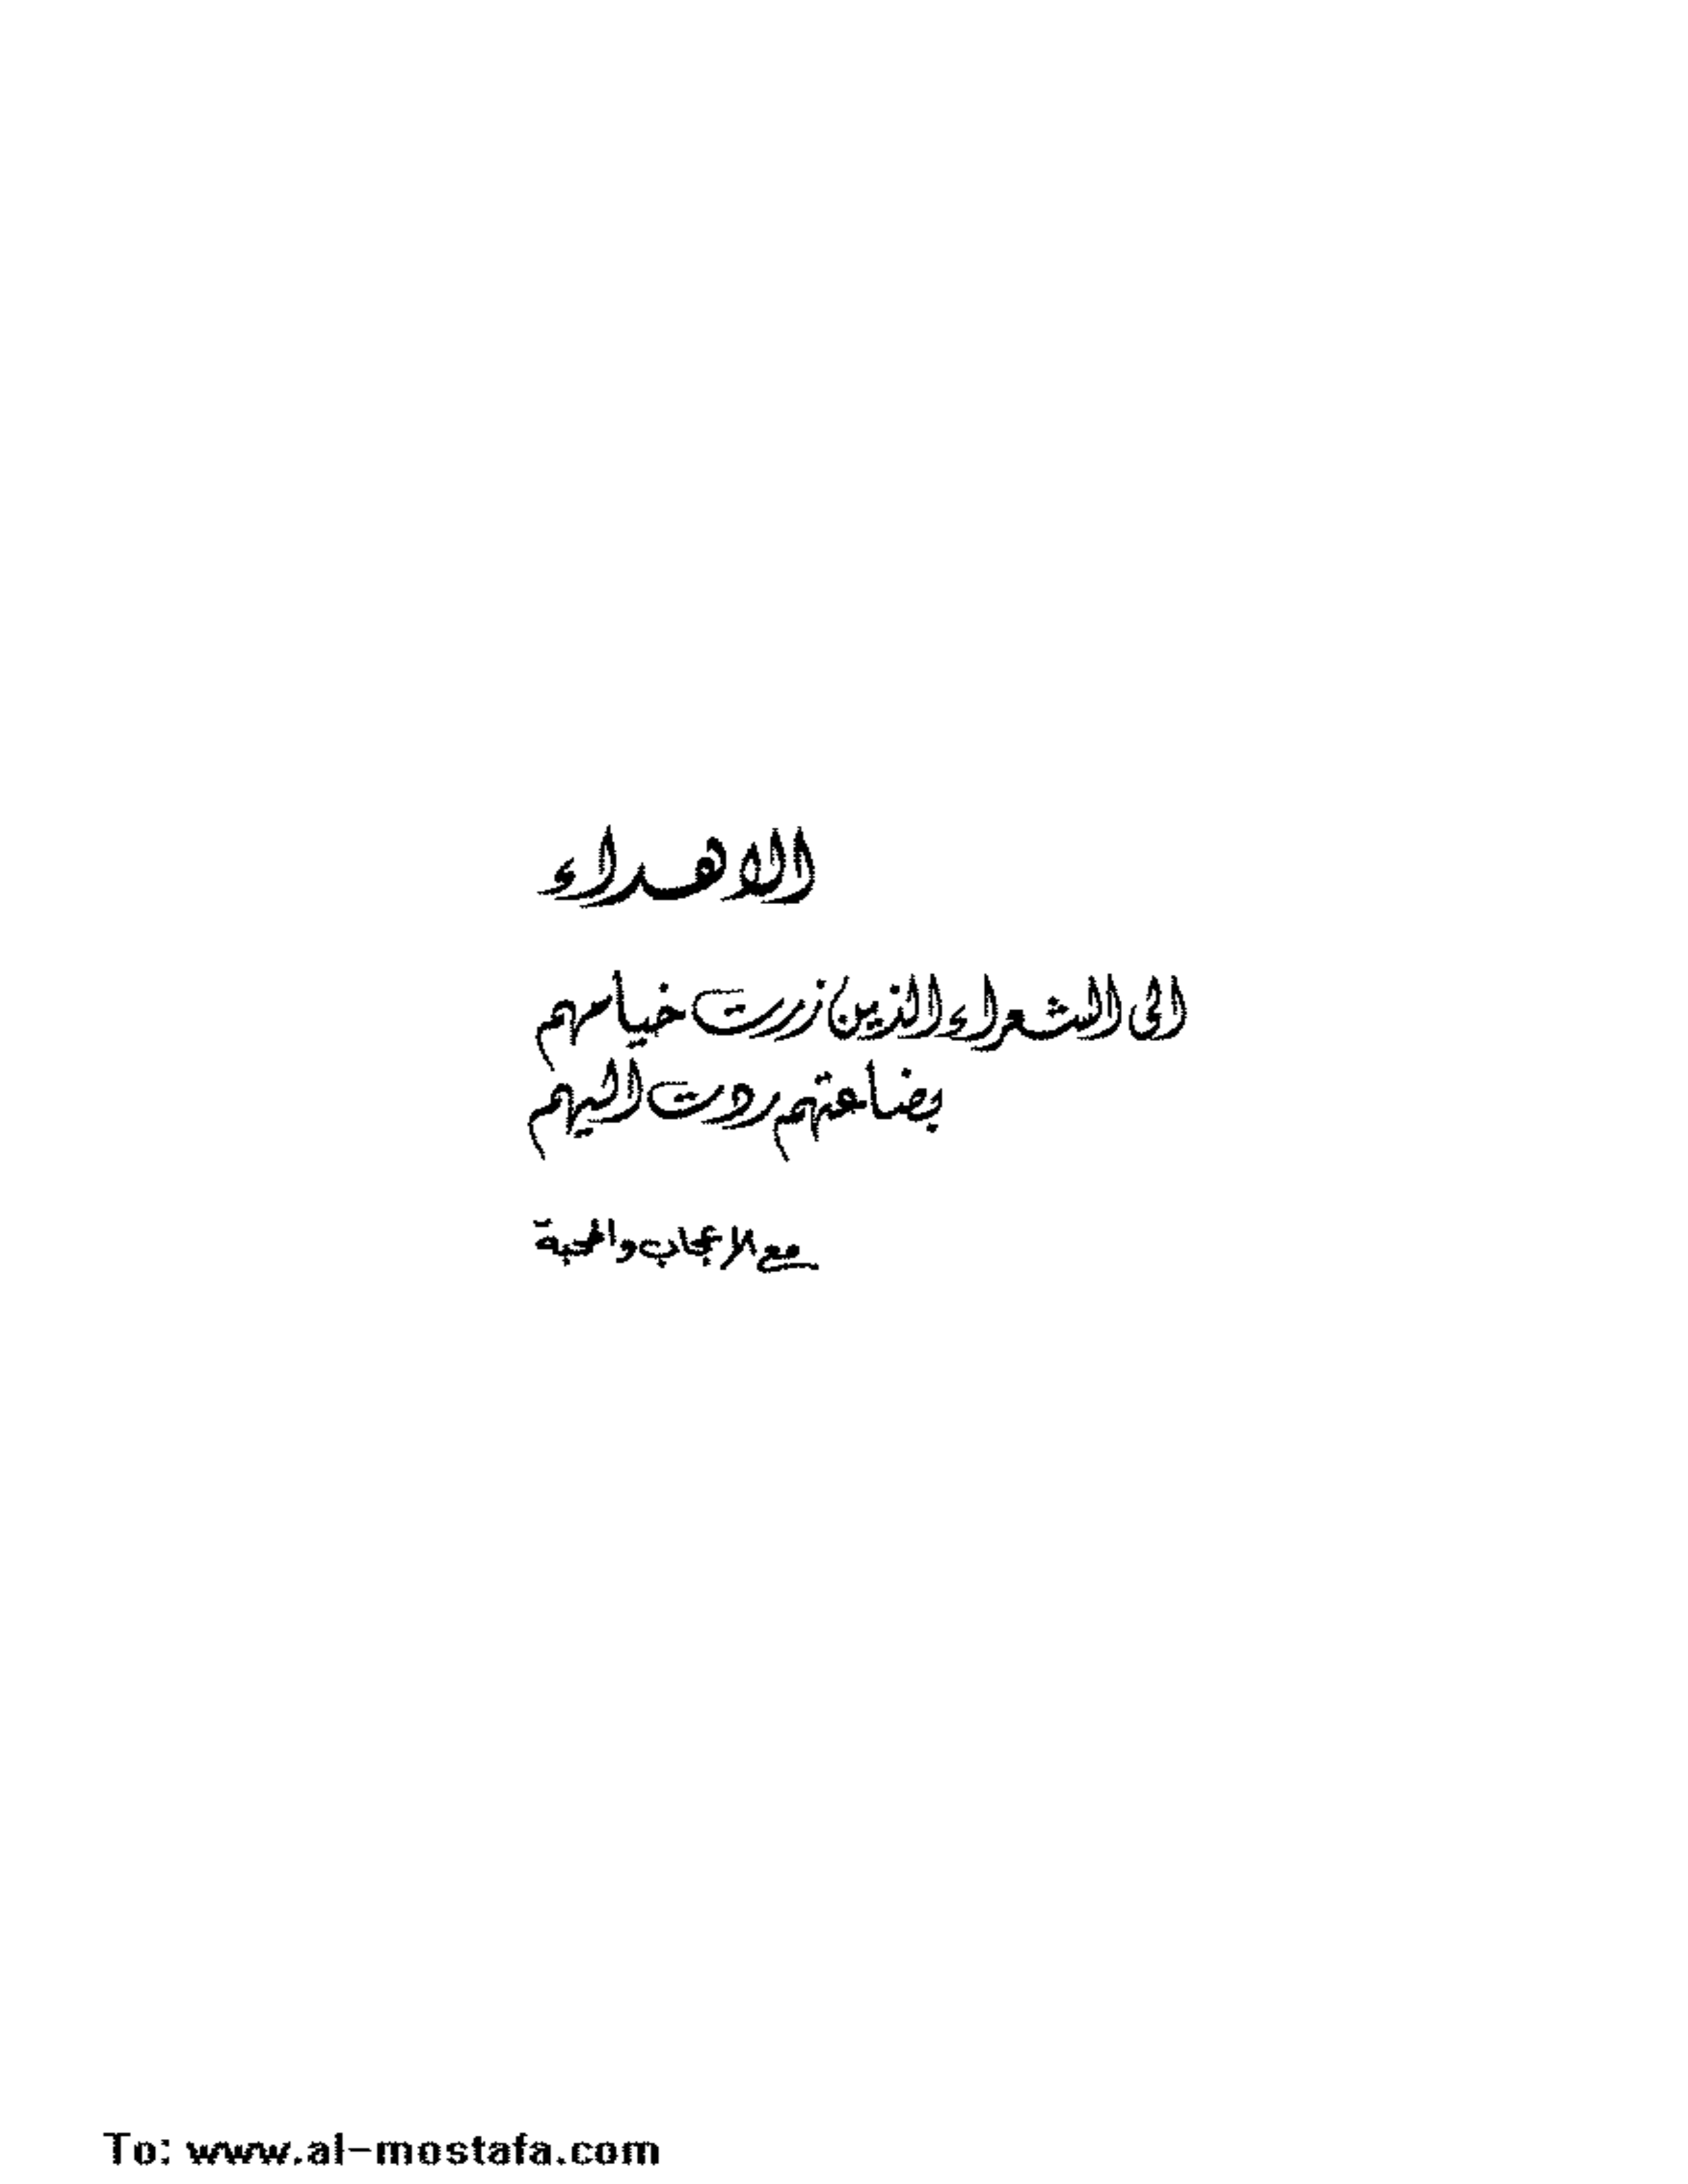 الاهداء
الى الشعراء الذين زرت خيامهم
بضاعتهم ردت اليهم
مع الاعجاب والمحبة
To: www.al-mostafa.com